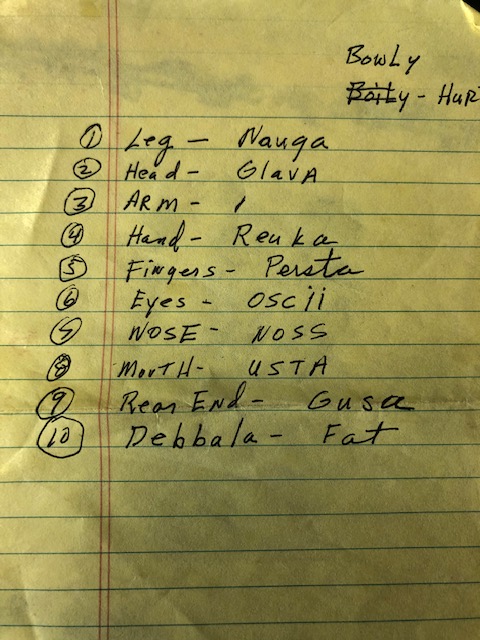 Bowly
Boily - HUR
① Leg - Nauga
② Head - Glava
③ ARM - ′
④ Hand - Reuka
⑤ Fingers - Persta
⑥ Eyes - OSCii
⑦ NOSE - NOSS
⑧ MOUTH - USTA
⑨ Rear End - Gusa
⑩ Debbala - Fat